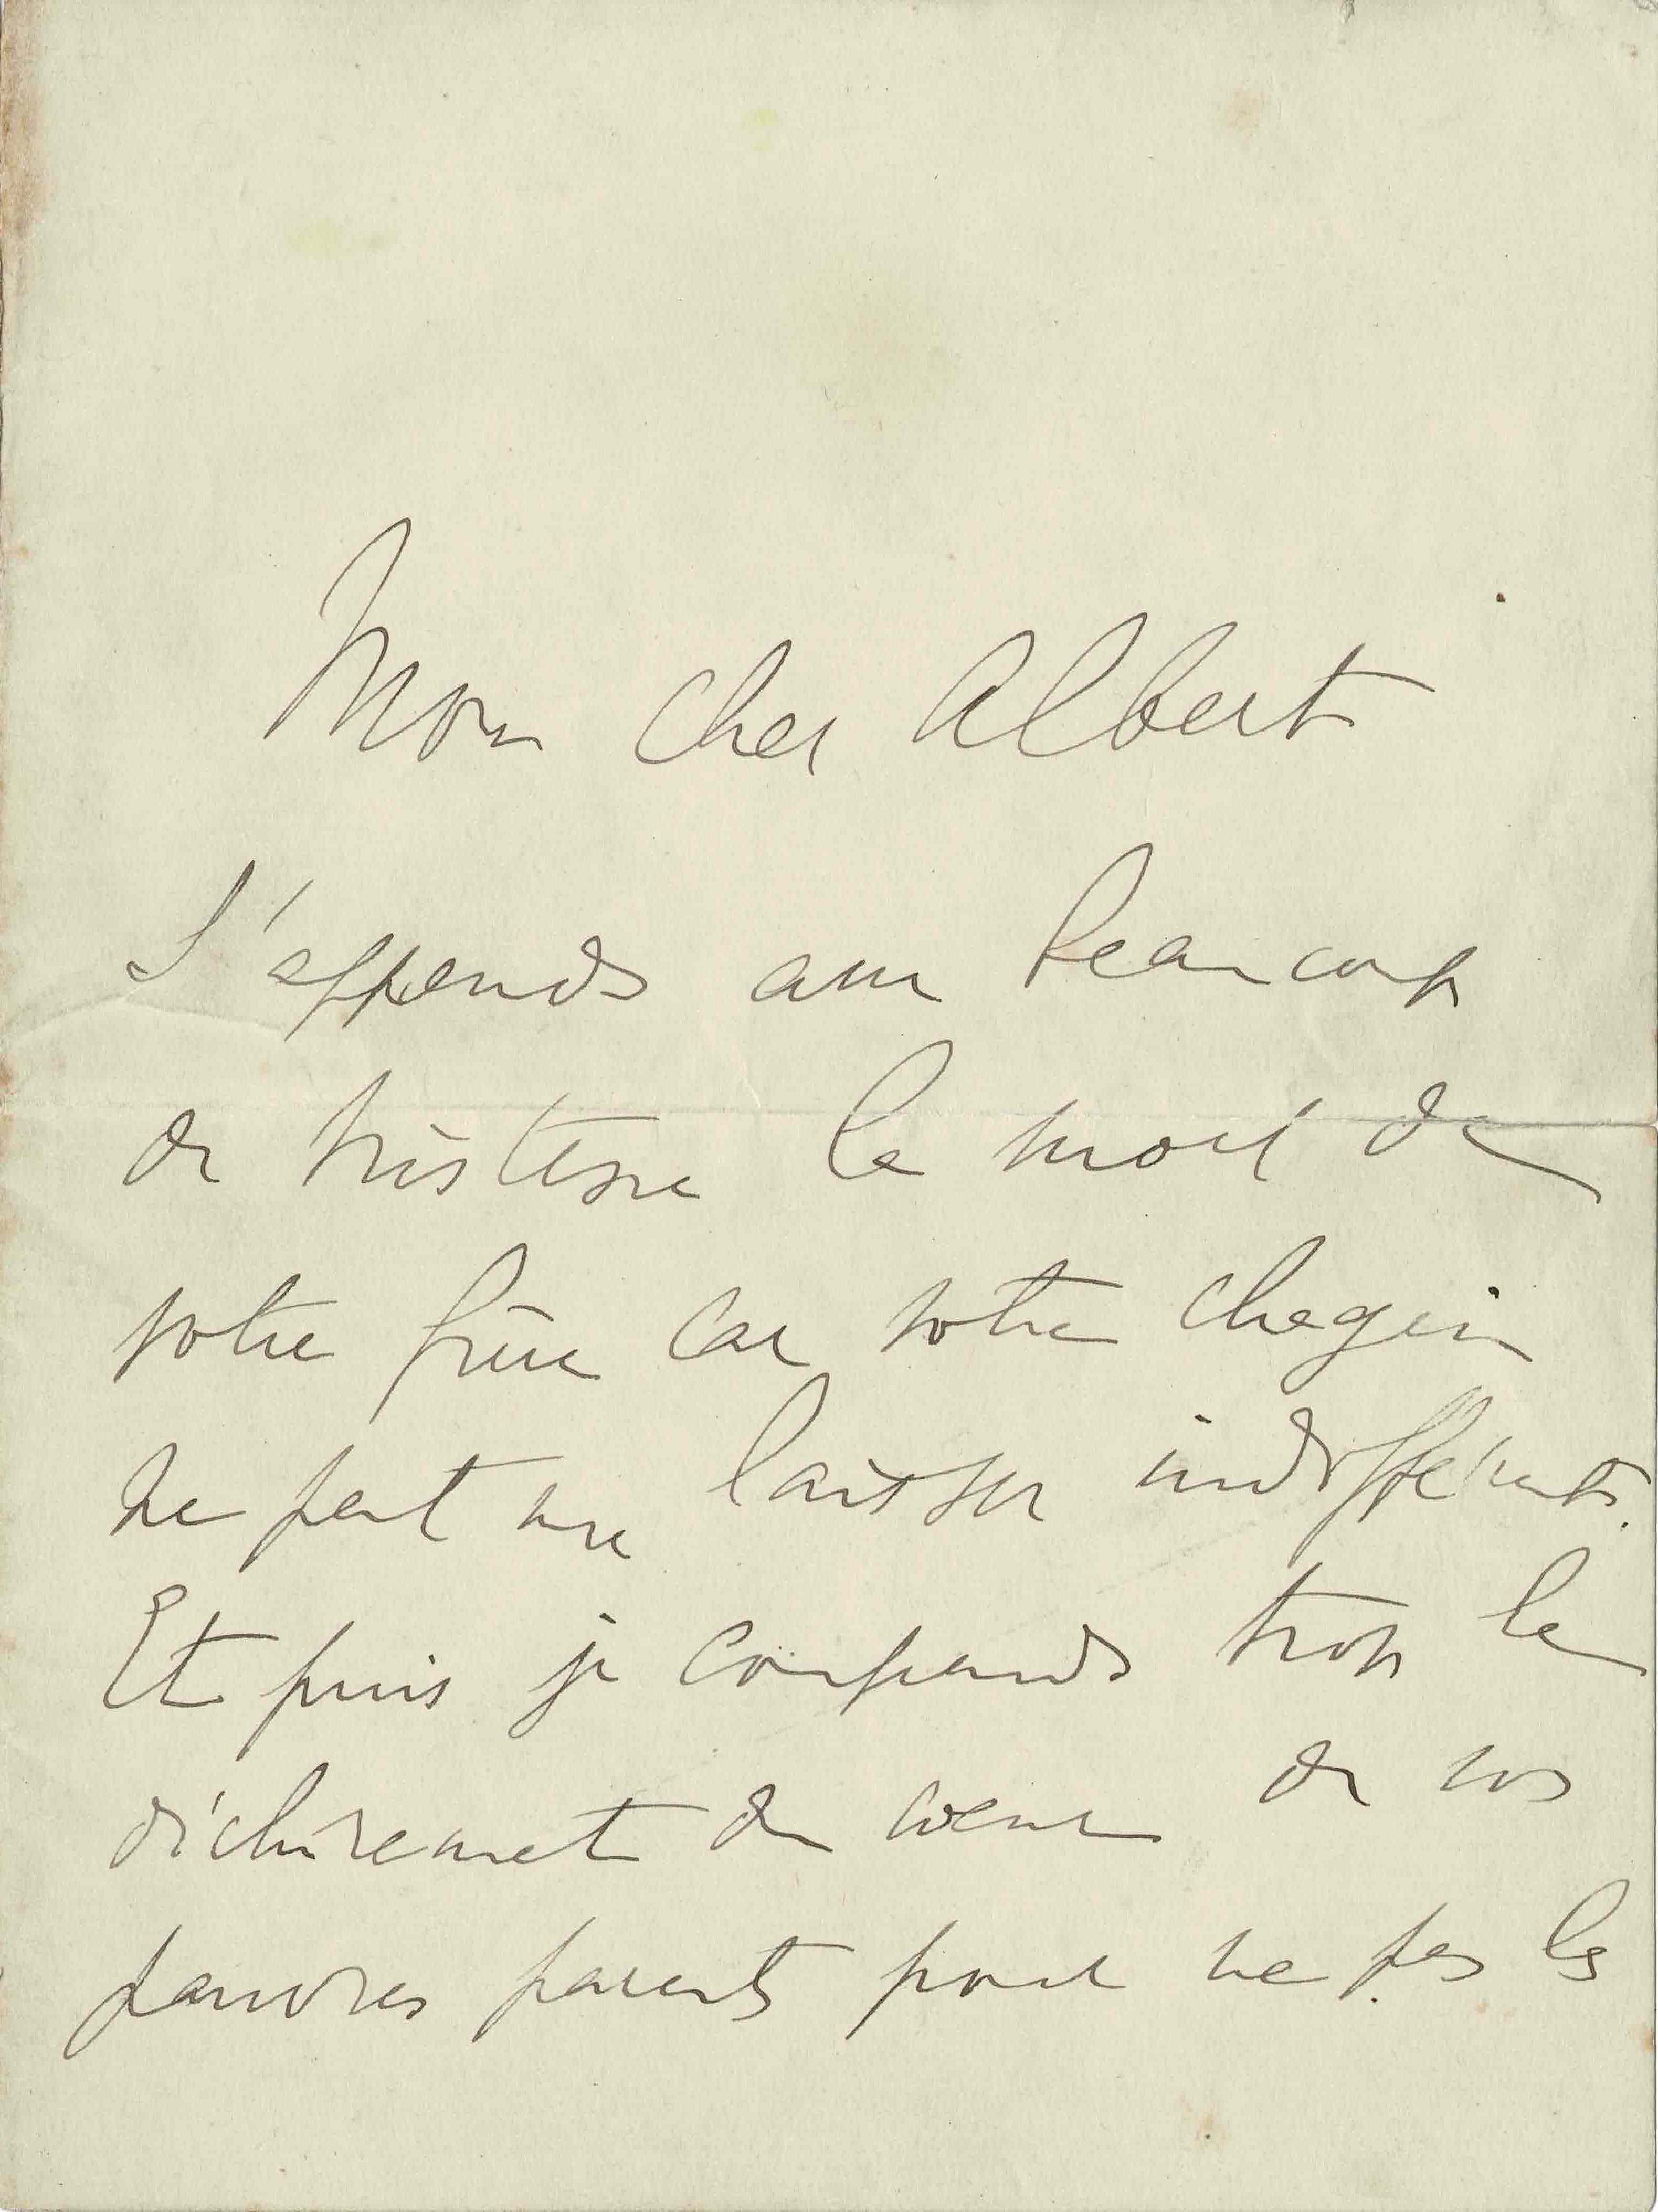 Mon cher Albert
J'apprends avec beaucoup
de tristesse la mort de
votre frère car votre chagrin
ne peut me laisser indifférent.
Et puis je comprends trop le
déchirement de cœur de vos
pauvres parents pour ne pas les